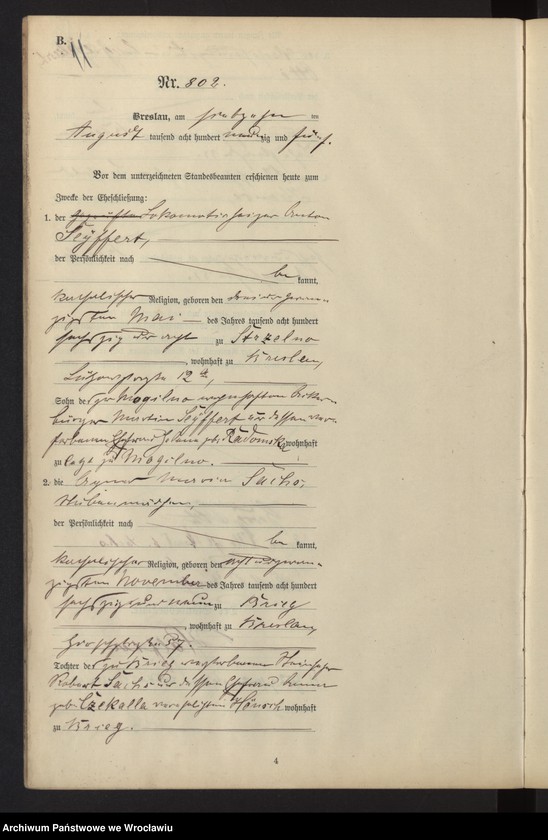 B.
Nr. 802.
Breslau, am siebzehnten
August tausend acht hundert neunzig und fünf.
Vor dem unterzeichneten Standesbeamten erschienen heute zum
Zwecke der Eheschließung:
1. der geprüfte Lokomotivheizer Anton
Seyffert,
der Persönlichkeit nach
be kannt,
katholischer Religion, geboren den dreiundzwan-
zigsten Mai des Jahres tausend acht hundert
sechszig und acht zu Strzelno
, wohnhaft zu Breslau,
12
Sohn des zu Mogilno wohnhaften Acker-
bürger Martin Seyffert und dessen ver-
storbenen Ehefrau Helena geb. Radomska wohnhaft
zu letzt zu Mogilno.
2. die Agnes Maria Sachs,
Stubenmädchen,
der Persönlichkeit nach
be kannt,
katholischer Religion, geboren den achtundzwan-
zigsten November des Jahres tausend acht hundert
sechszig und neun zu Brieg
, wohnhaft zu Breslau,
57.
Tochter des zu Brieg verstorbenen
Robert Sachs und dessen Ehefrau
geb. Czekalla verehelichten Hönsch wohnhaft
zu Brieg.
4
Archiwum Państwowe we Wrocławiu